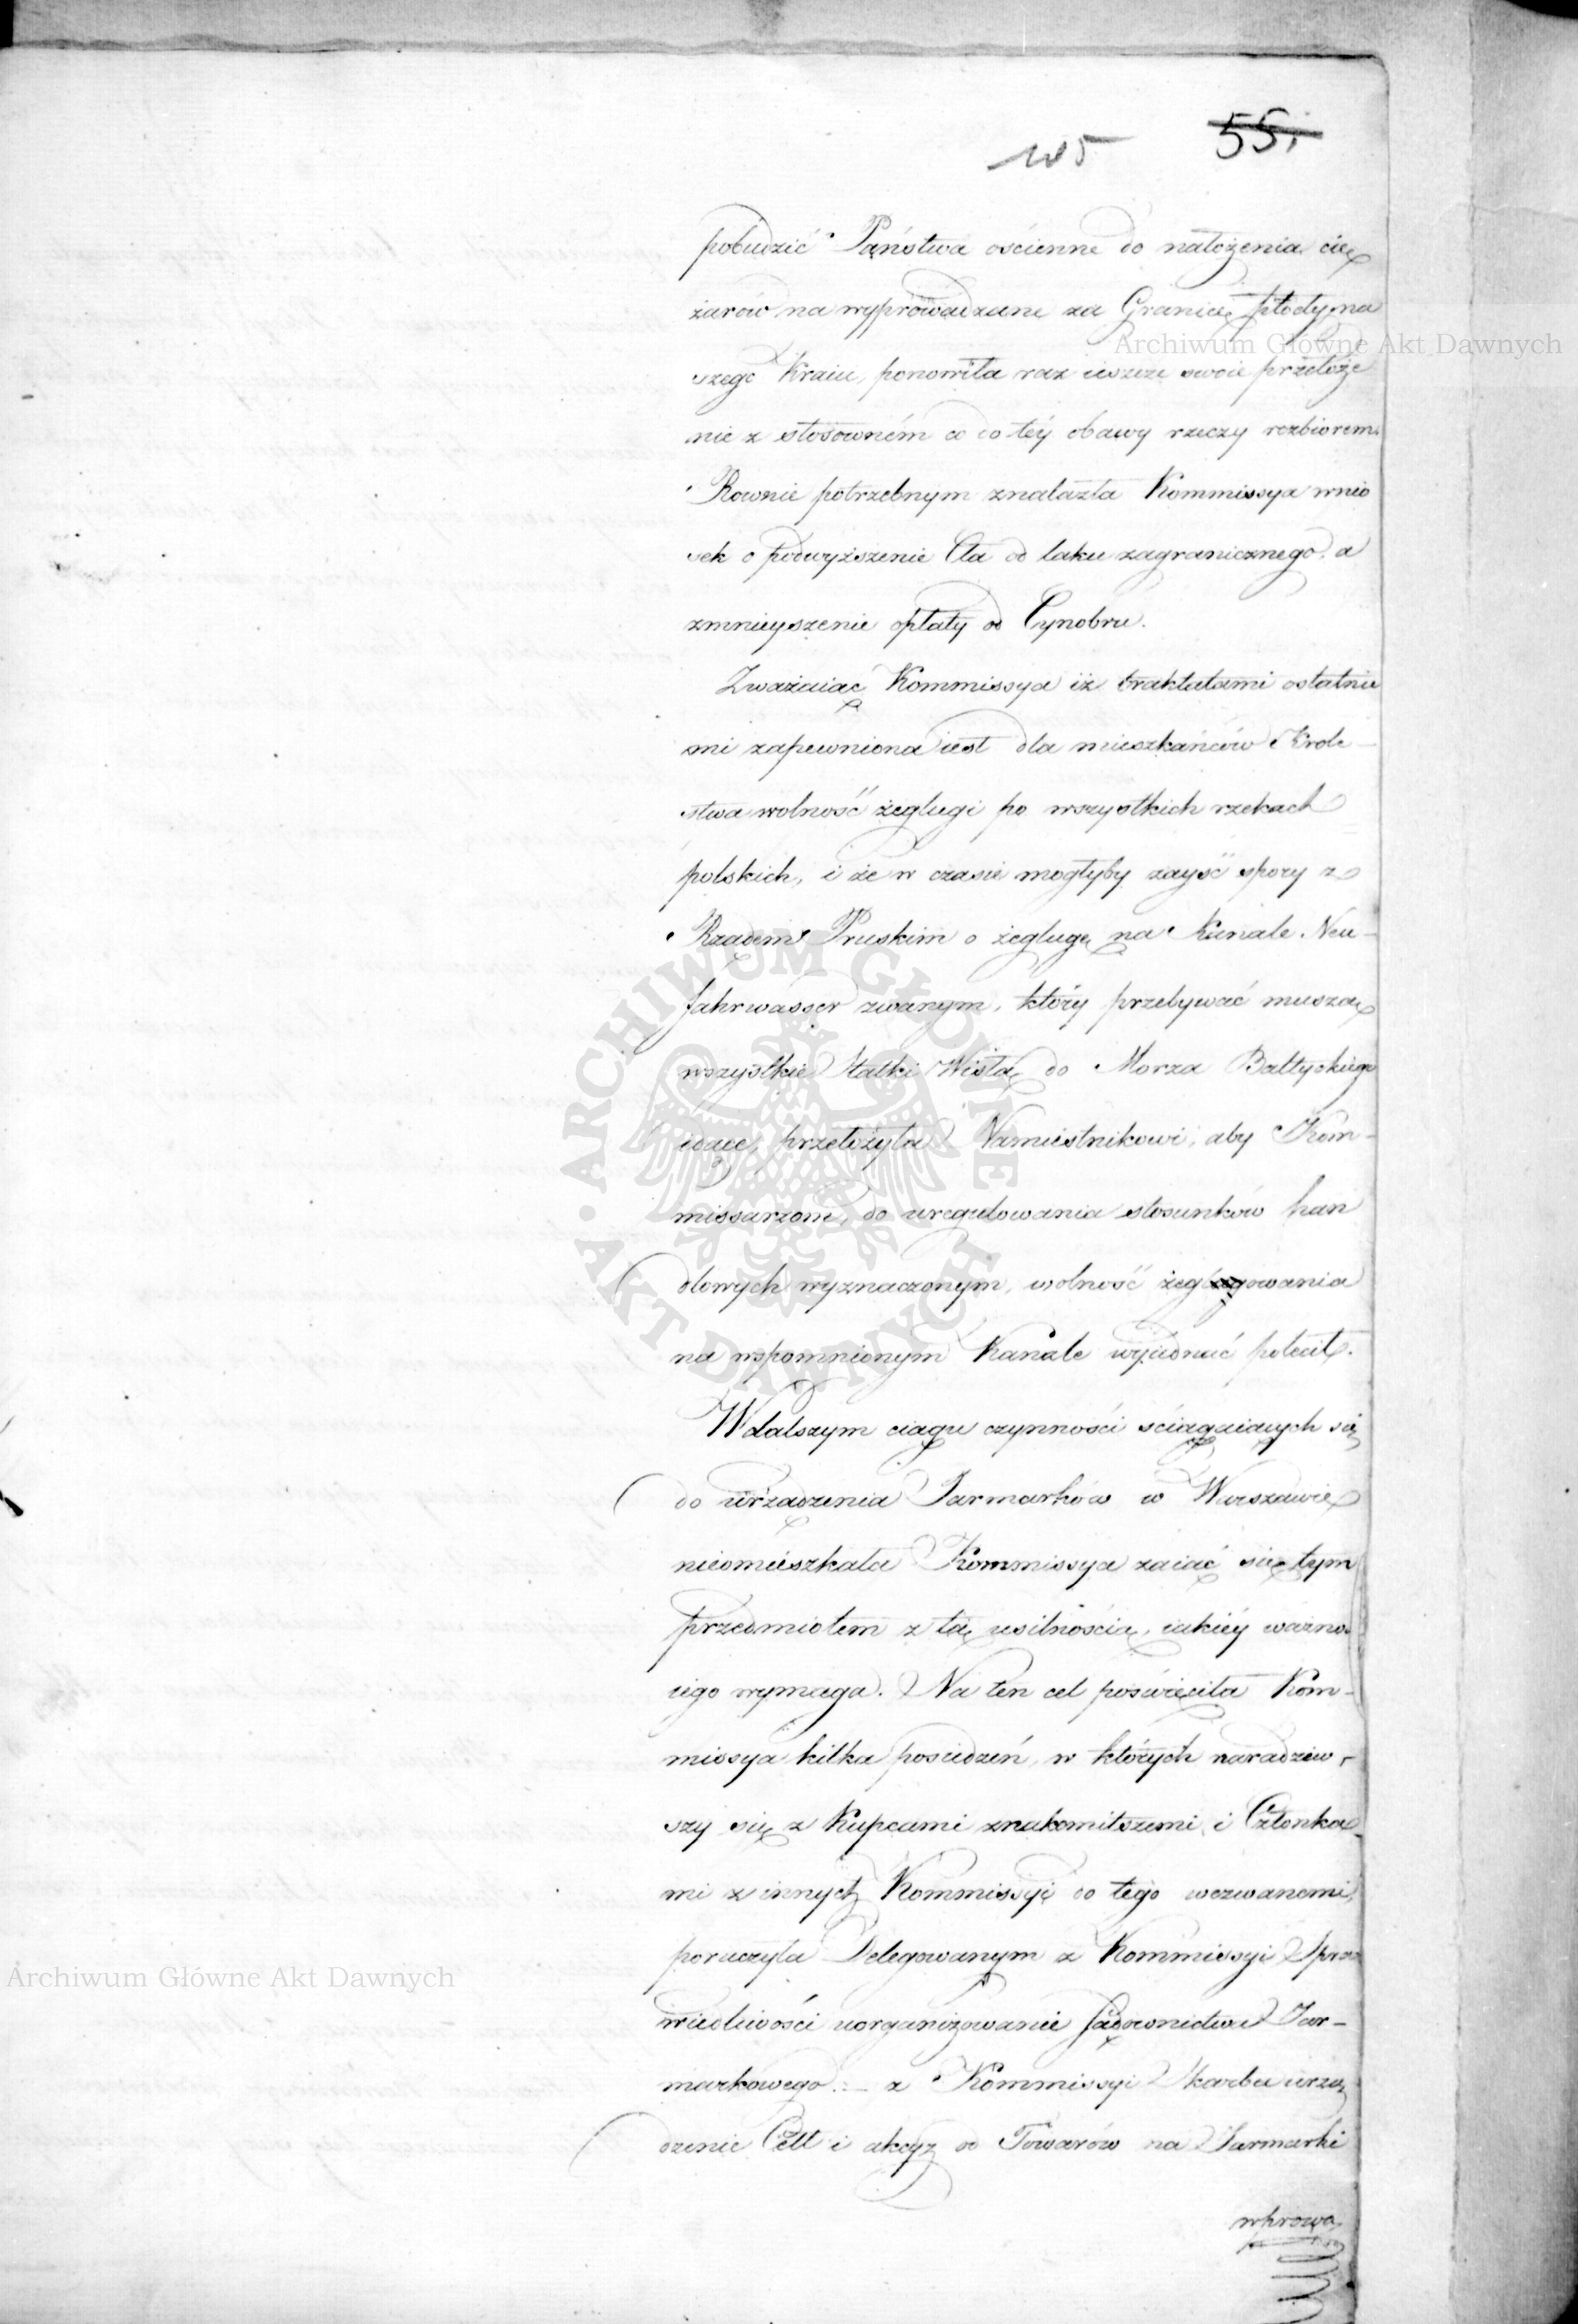 105 55.
pobudzić Państwa ościenne do nałożenia cię
żarów na wyprowadzane za Granicę płody na
Archiwum Główne Akt Dawnych
szego Kraiu, ponowiła raz ieszcze swoie przełoże
nie z stosowném co do téy obawy rzeczy rozbiorem.
Rownie potrzebnym znalazła Kommissya wnio
sek o podwyższenie Cła od laku zagranicznego, a
zmnieyszenie opłaty od Cynobru.
Zważaiąc Kommissya iż traktatami ostatnie
mi zapewniona iest dla mieszkańców Krole-
stwa wolność żeglugi po wszystkich rzekach
polskich, i że w czasie mogłyby zayść spory z
Rządem Pruskim o żeglugę na Kanale Neu-
fahrwasser zwanym, który przebywać muszą
wszystkie Statki Wisłą do Morza Baltyckiego
idące, przełożyła Namiestnikowi, aby Kom-
missarzom, do uregulowania stosunków han
dlowych wyznaczonym, wolność żeglugowania
na wspomnionym Kanale wyiednać polecił.
W dalszym ciągu czynności sciągaiących się
do urządzenia Jarmarków w Warszawie
nieomieszkała Kommissya zaiąć się tym
przedmiotem z tą usilnością, iakiéy ważno.
iego wymaga. Na ten cel poświęciła Kom-
missya kilka posiedzeń, w których naradziw-
szy się z Kupcami znakomitszemi, i Członka-
mi z innych Kommissyi do tego wezwanemi,
poruczyła Delegowanym z Kommissyi Spra
Archiwum Główne Akt Dawnych
wiedliwości uorganizowanie sądownictwa Jar-
markowego. – z Kommissyi Skarbu urzą
dzenie Cell i akcyz od Towarów na Jarmarki
wprowa
ARCHIWUM GŁÓWNE
AKT DAWNYCH